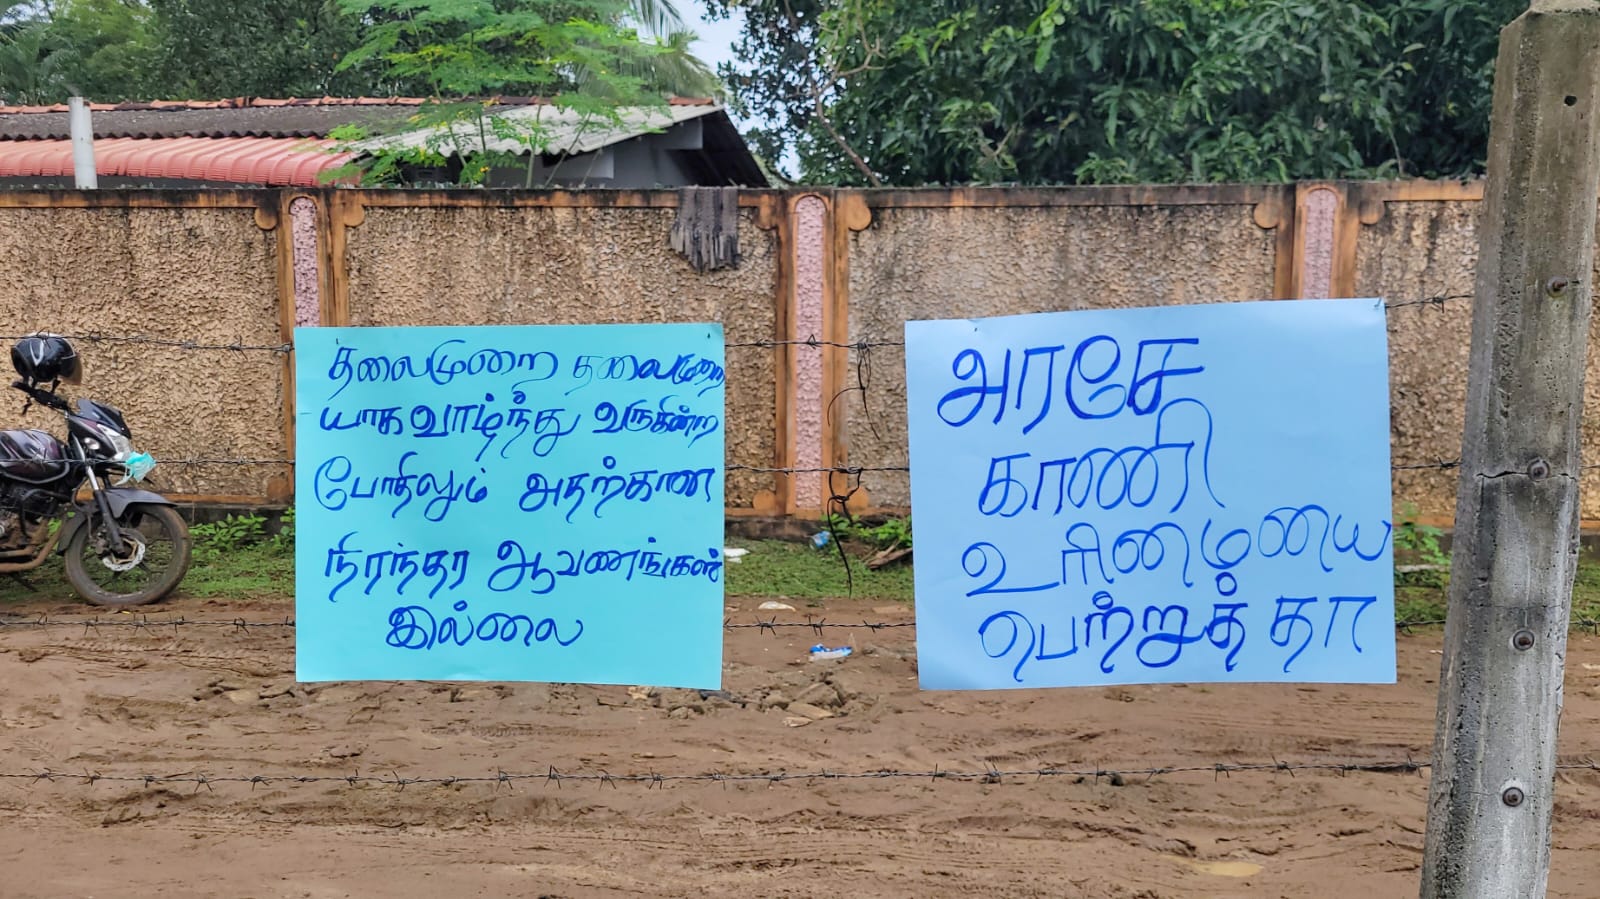 தலைமுறை தலைமுறை
யாக வாழ்ந்து வருகின்ற
போதிலும் அதற்கான
நிரந்தர ஆவணங்கள்
இல்லை
அரசே
காணி
உரிமையை
பெற்றுத் தா